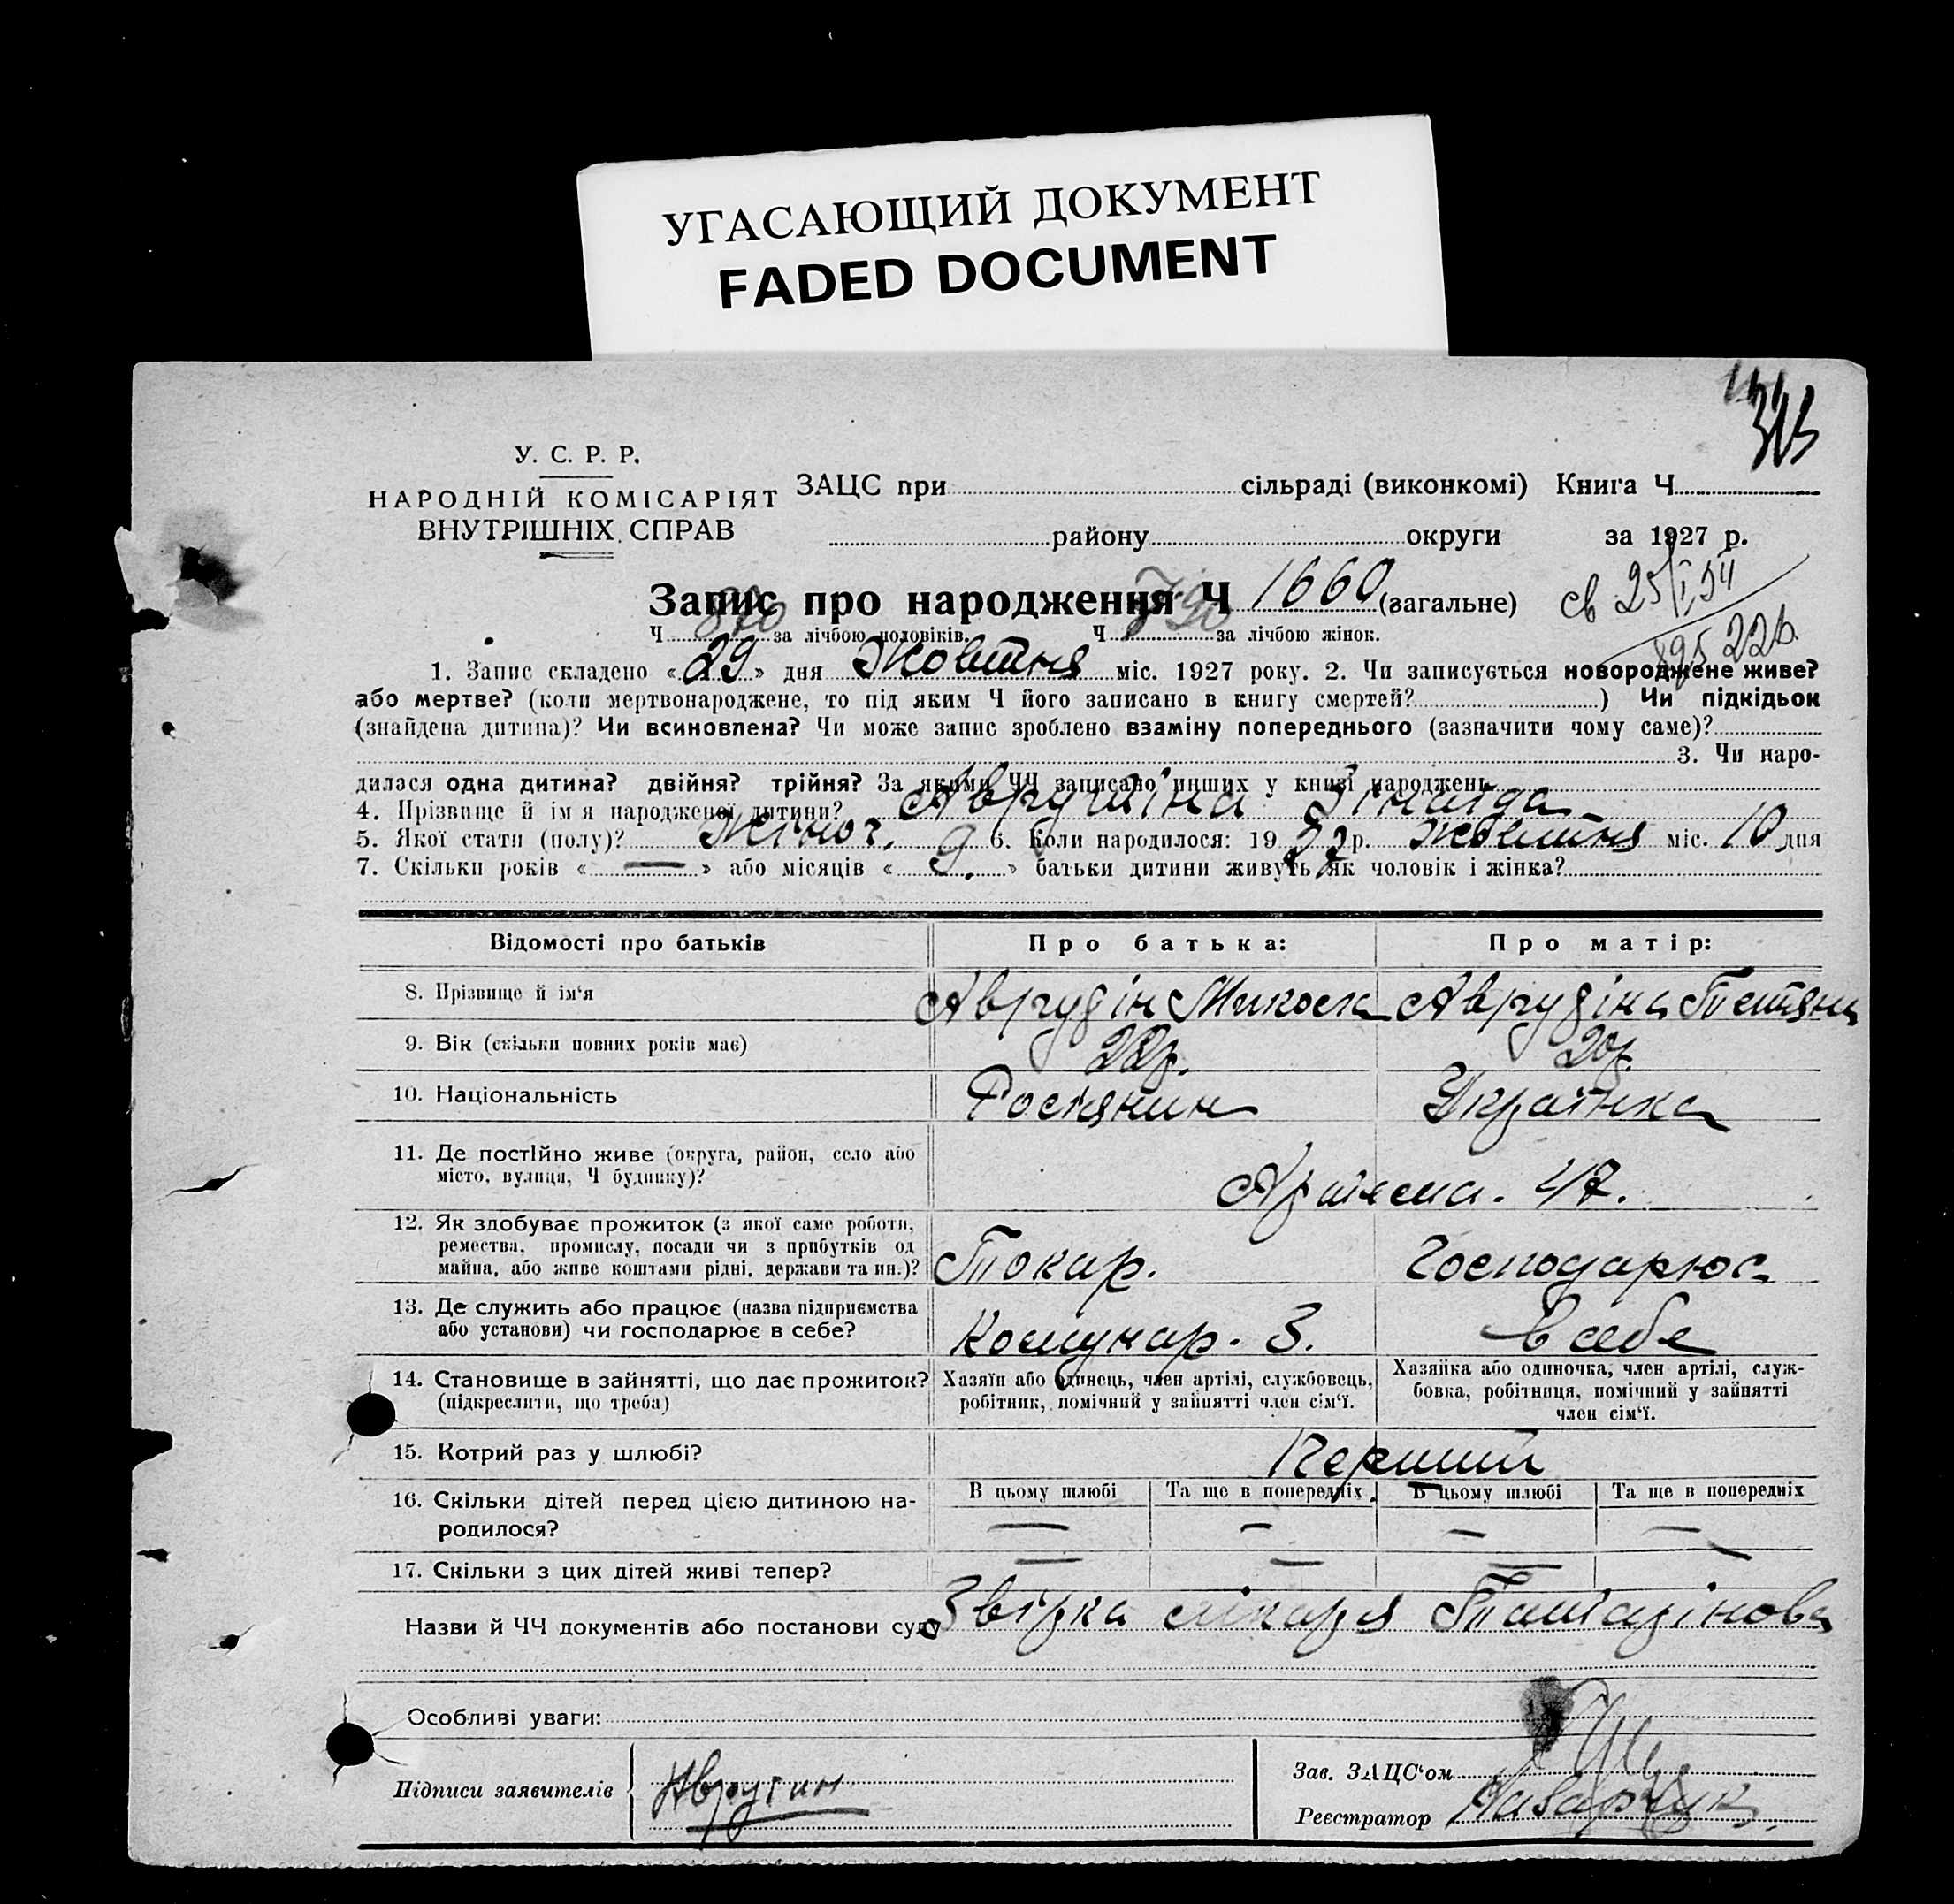 УГАСАЮЩИЙ ДОКУМЕНТ
FADED DOCUMENT
У. С. Р. Р.
НАРОДНІЙ КОМІСАРІЯТ
ВНУТРІШНІХ СПРАВ
ЗАЦС при сільраді (виконкомі) Книга Ч
району округи за 1927 р.
Запис про народження Ч 1660 (загальне)
св 25/I 54
Ч 870 за лічбою чоловіків. Ч 790 за лічбою жінок.
1. Запис складено « 29 » дня Жовтня міс. 1927 року. 2. Чи записується новороджене живе?
або мертве? (коли мертвонароджене, то під яким Ч його записано в книгу смертей? ) Чи підкідьок
(знайдена дитина)? Чи всиновлена? Чи може запис зроблено взаміну попереднього (зазначити чому саме)?
3. Чи наро-
дилася одна дитина? двійня? трійня? За якими ЧЧ записано инших у книзі народжень
4. Прізвище й ім'я народженої дитини? Зінаїда
5. Якої стати (полу)? Жіноч. 6. Коли народилося: 1927 р. Жовтня міс. 10 дня
7. Скільки років « — » або місяців « 9. » батьки дитини живуть як чоловік і жінка?
Відомості про батьків
Про батька:
Про матір:
8. Прізвище й ім'я
Аврудін Микола
Аврудіна Тетяна
9. Вік (скільки повних років має)
22р.
20р.
10. Національність
Росіянин
Українка
11. Де постійно живе (округа, район, село або
місто, вулиця, Ч будинку)?
Артема. 47.
12. Як здобуває прожиток (з якої саме роботи,
ремества, промислу, посади чи з прибутків од
майна, або живе коштами рідні, держави та ин.)?
Токар.
Господарює
13. Де служить або працює (назва підприємства
або установи) чи господарює в себе?
Комунар. З.
в себе
14. Становище в зайнятті, що дає прожиток?
(підкреслити, що треба)
Хазяїн або одинець, член артілі, службовець,
робітник, помічний у зайнятті член сім'ї.
Хазяйка або одиночка, член артілі, служ-
бовка, робітниця, помічний у зайнятті
член сім'ї.
15. Котрий раз у шлюбі?
Перший
16. Скільки дітей перед цією дитиною на-
родилося?
В цьому шлюбі Та ще в попередніх В цьому шлюбі Та ще в попередніх
— — — —
17. Скільки з цих дітей живі тепер?
— — — —
Назви й ЧЧ документів або постанови суду Звірка лікаря
Особливі уваги:
Підписи заявителів
Зав. ЗАЦС'ом
Реєстратор